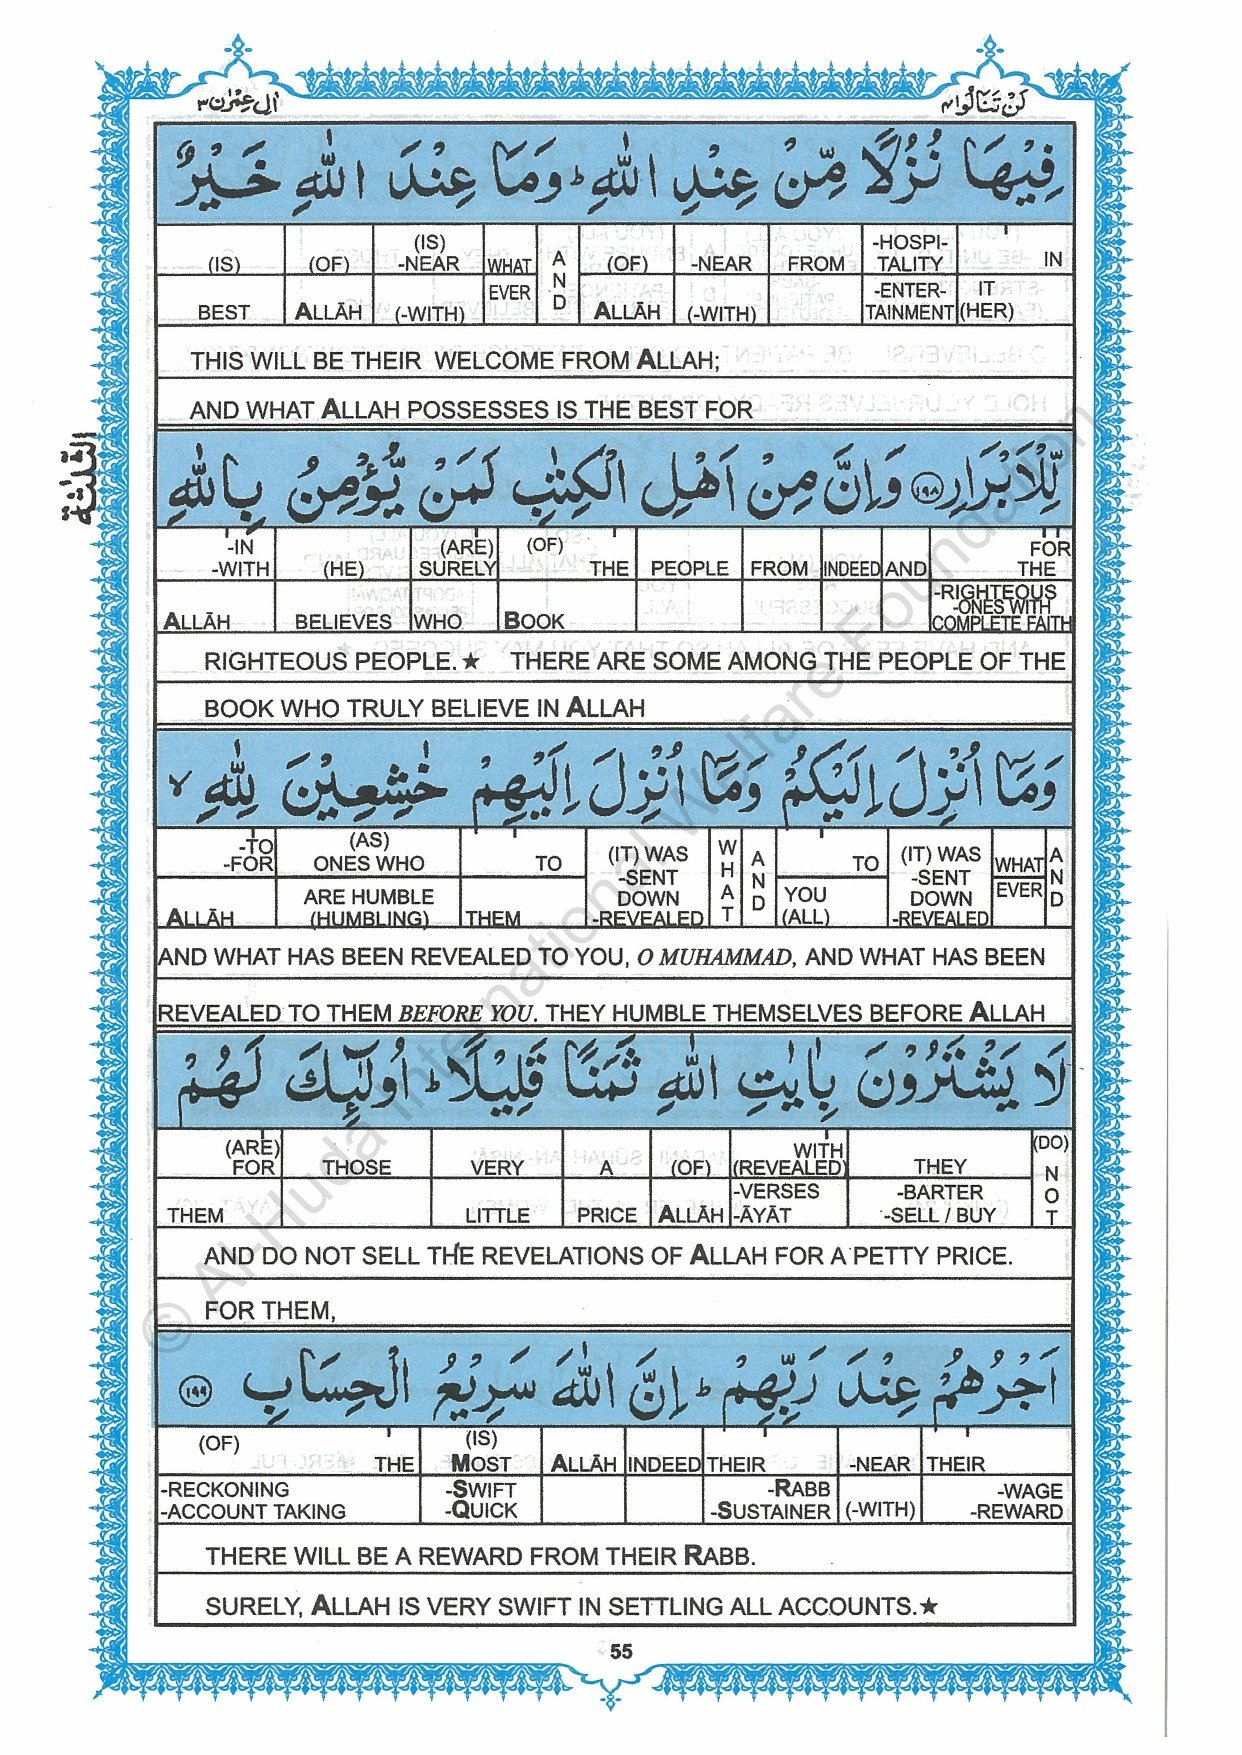 اٰل عمرٰن ۳
لَنْ تَنَالُوا ۴
فِيْهَا نُزُلًا مِّنْ عِنْدِ اللّٰهِ ؕ وَمَا عِنْدَ اللّٰهِ خَيْرٌ
(IS) (OF) (IS) -NEAR WHAT AND (OF) -NEAR FROM -HOSPI- TALITY IN
BEST ALLĀH (-WITH) EVER ALLĀH (-WITH) -ENTER- TAINMENT IT (HER)
THIS WILL BE THEIR WELCOME FROM ALLAH;
AND WHAT ALLAH POSSESSES IS THE BEST FOR
الثلثة
لِّلْاَبْرَارِ ۱۹۸ وَاِنَّ مِنْ اَهْلِ الْكِتٰبِ لَمَنْ يُّؤْمِنُ بِاللّٰهِ
-IN -WITH (HE) (ARE) SURELY (OF) THE PEOPLE FROM INDEED AND FOR THE
ALLĀH BELIEVES WHO BOOK -RIGHTEOUS -ONES WITH COMPLETE FAITH
RIGHTEOUS PEOPLE.★ THERE ARE SOME AMONG THE PEOPLE OF THE
BOOK WHO TRULY BELIEVE IN ALLAH
وَمَآ اُنْزِلَ اِلَيْكُمْ وَمَآ اُنْزِلَ اِلَيْهِمْ خٰشِعِيْنَ لِلّٰهِ ۙ
-TO -FOR (AS) ONES WHO TO (IT) WAS -SENT DOWN -REVEALED WHAT AND TO (IT) WAS -SENT DOWN -REVEALED WHAT AND
ALLĀH ARE HUMBLE (HUMBLING) THEM YOU (ALL) EVER
AND WHAT HAS BEEN REVEALED TO YOU, O MUHAMMAD, AND WHAT HAS BEEN
REVEALED TO THEM BEFORE YOU. THEY HUMBLE THEMSELVES BEFORE ALLAH
لَا يَشْتَرُوْنَ بِاٰيٰتِ اللّٰهِ ثَمَنًا قَلِيْلًا ؕ اُولٰٓئِكَ لَهُمْ
(ARE) FOR THOSE VERY A (OF) WITH (REVEALED) THEY (DO) NOT
THEM LITTLE PRICE ALLĀH -VERSES -ĀYĀT -BARTER -SELL / BUY
AND DO NOT SELL THE REVELATIONS OF ALLAH FOR A PETTY PRICE.
FOR THEM,
اَجْرُهُمْ عِنْدَ رَبِّهِمْ ؕ اِنَّ اللّٰهَ سَرِيْعُ الْحِسَابِ ۱۹۹
(OF) THE (IS) MOST ALLĀH INDEED THEIR -NEAR THEIR
-RECKONING -ACCOUNT TAKING -SWIFT -QUICK -RABB -SUSTAINER (-WITH) -WAGE -REWARD
THERE WILL BE A REWARD FROM THEIR RABB.
SURELY, ALLAH IS VERY SWIFT IN SETTLING ALL ACCOUNTS.★
55
© Al-Huda International Welfare Foundation